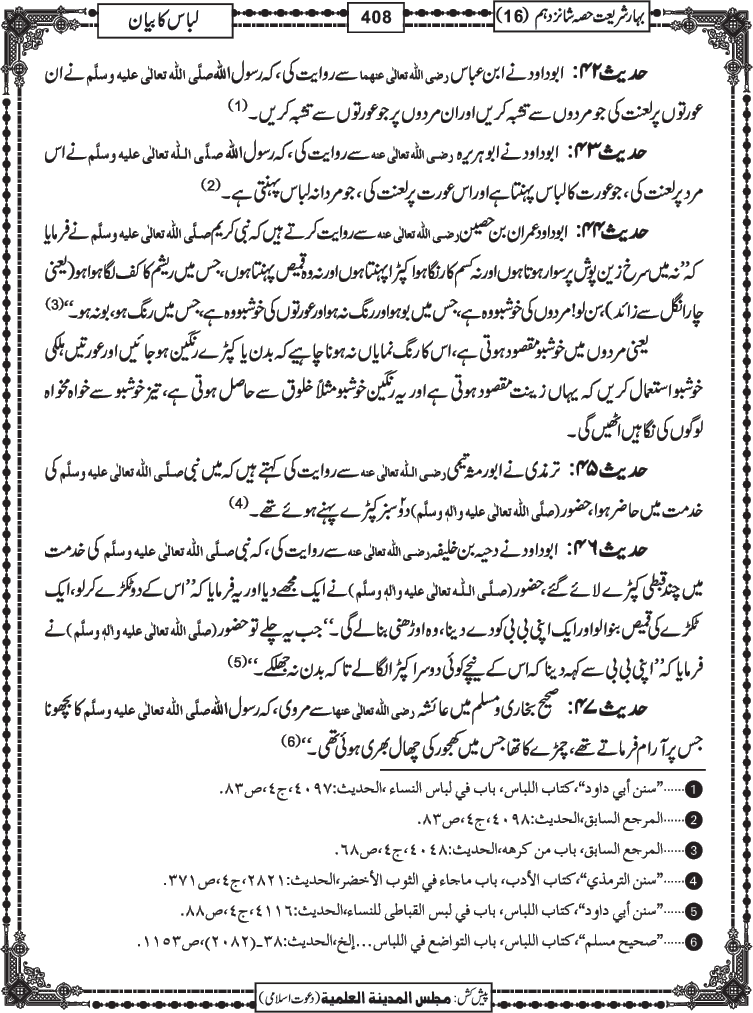 بہارِشریعت حصہ شانزدہم (16)
408
لباس کا بیان
حدیث ۴۲: ابوداود نے ابن عباس رضی اللہ تعالٰی عنھما سے روایت کی، کہ رسول اللہ صلَّی اللہ تعالٰی علیہ وسلَّم نے ان
عورتوں پر لعنت کی جو مردوں سے تشبہ کریں اور ان مردوں پر جو عورتوں سے تشبہ کریں۔(1)
حدیث ۴۳: ابوداود نے ابوہریرہ رضی اللہ تعالٰی عنہ سے روایت کی، کہ رسول اللہ صلَّی اللہ تعالٰی علیہ وسلَّم نے اس
مرد پر لعنت کی، جو عورت کا لباس پہنتا ہے اور اس عورت پر لعنت کی، جو مردانہ لباس پہنتی ہے۔(2)
حدیث ۴۴: ابوداود عمران بن حصین رضی اللہ تعالٰی عنہ سے روایت کرتے ہیں کہ نبی کریم صلَّی اللہ تعالٰی علیہ وسلَّم نے فرمایا
کہ ’’نہ میں سرخ زین پوش پر سوار ہوتا ہوں اور نہ کسم کا رنگا ہوا کپڑا پہنتا ہوں اور نہ وہ قمیص پہنتا ہوں، جس میں ریشم کا کف لگا ہوا ہو (یعنی
چار انگل سے زائد)، سن لو! مردوں کی خوشبو وہ ہے، جس میں بو ہو اور رنگ نہ ہو اور عورتوں کی خوشبو وہ ہے، جس میں رنگ ہو، بو نہ ہو۔‘‘(3)
یعنی مردوں میں خوشبو مقصود ہوتی ہے، اس کا رنگ نمایاں نہ ہونا چاہیے کہ بدن یا کپڑے رنگین ہو جائیں اور عورتیں ہلکی
خوشبو استعمال کریں کہ یہاں زینت مقصود ہوتی ہے اور یہ رنگین خوشبو مثلاً خلوق سے حاصل ہوتی ہے، تیز خوشبو سے خواہ مخواہ
لوگوں کی نگاہیں اٹھیں گی۔
حدیث ۴۵: ترمذی نے ابو رمثہ تیمی رضی اللہ تعالٰی عنہ سے روایت کی کہتے ہیں کہ میں نبی صلَّی اللہ تعالٰی علیہ وسلَّم کی
خدمت میں حاضر ہوا، حضور (صلَّی اللہ تعالٰی علیہ واٰلہٖ وسلَّم) دو۲ سبز کپڑے پہنے ہوئے تھے۔(4)
حدیث ۴۶: ابوداود نے دحیہ بن خلیفہ رضی اللہ تعالٰی عنہ سے روایت کی، کہ نبی صلَّی اللہ تعالٰی علیہ وسلَّم کی خدمت
میں چند قبطی کپڑے لائے گئے، حضور (صلَّی اللہ تعالٰی علیہ واٰلہٖ وسلَّم) نے ایک مجھے دیا اور یہ فرمایا کہ ’’اس کے دو ٹکڑے کرلو، ایک
ٹکڑے کی قمیص بنوالو اور ایک اپنی بی بی کو دے دینا، وہ اوڑھنی بنالے گی۔‘‘ جب یہ چلے تو حضور (صلَّی اللہ تعالٰی علیہ واٰلہٖ وسلَّم) نے
فرمایا کہ ’’اپنی بی بی سے کہہ دینا کہ اس کے نیچے کوئی دوسرا کپڑا لگالے تاکہ بدن نہ جھلکے۔‘‘(5)
حدیث ۴۷: صحیح بخاری و مسلم میں عائشہ رضی اللہ تعالٰی عنھا سے مروی، کہ رسول اللہ صلَّی اللہ تعالٰی علیہ وسلَّم کا بچھونا
جس پر آرام فرماتے تھے، چمڑے کا تھا جس میں کھجور کی چھال بھری ہوئی تھی۔‘‘(6)
1 ......”سنن أبي داود“، كتاب اللباس، باب في لباس النساء، الحديث: ٤٠٩٧، ج٤، ص٨٣.
2 ......المرجع السابق، الحديث: ٤٠٩٨، ج٤، ص٨٣.
3 ......المرجع السابق، باب من كرهه، الحديث: ٤٠٤٨، ج٤، ص٦٨.
4 ......”سنن الترمذي“، كتاب الأدب، باب ماجاء في الثوب الأخضر، الحديث: ٢٨٢١، ج٤، ص٣٧١.
5 ......”سنن أبي داود“، كتاب اللباس، باب في لبس القباطي للنساء، الحديث: ٤١١٦، ج٤، ص٨٨.
6 ......”صحيح مسلم“، كتاب اللباس، باب التواضع في اللباس...إلخ، الحديث: ٣٨ـ(٢٠٨٢)، ص١١٥٣.
پیش کش: مجلس المدینۃ العلمیۃ (دعوت اسلامی)